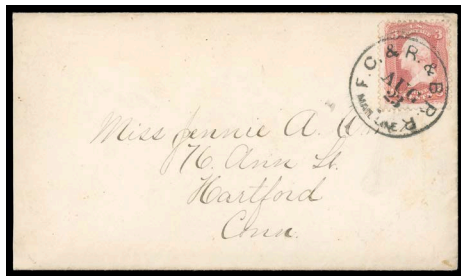 3
F. C. & R. & B. R. R.
AUG
23
MAIL LINE
Miss Jennie A.
76 Ann St.
Hartford
Conn.